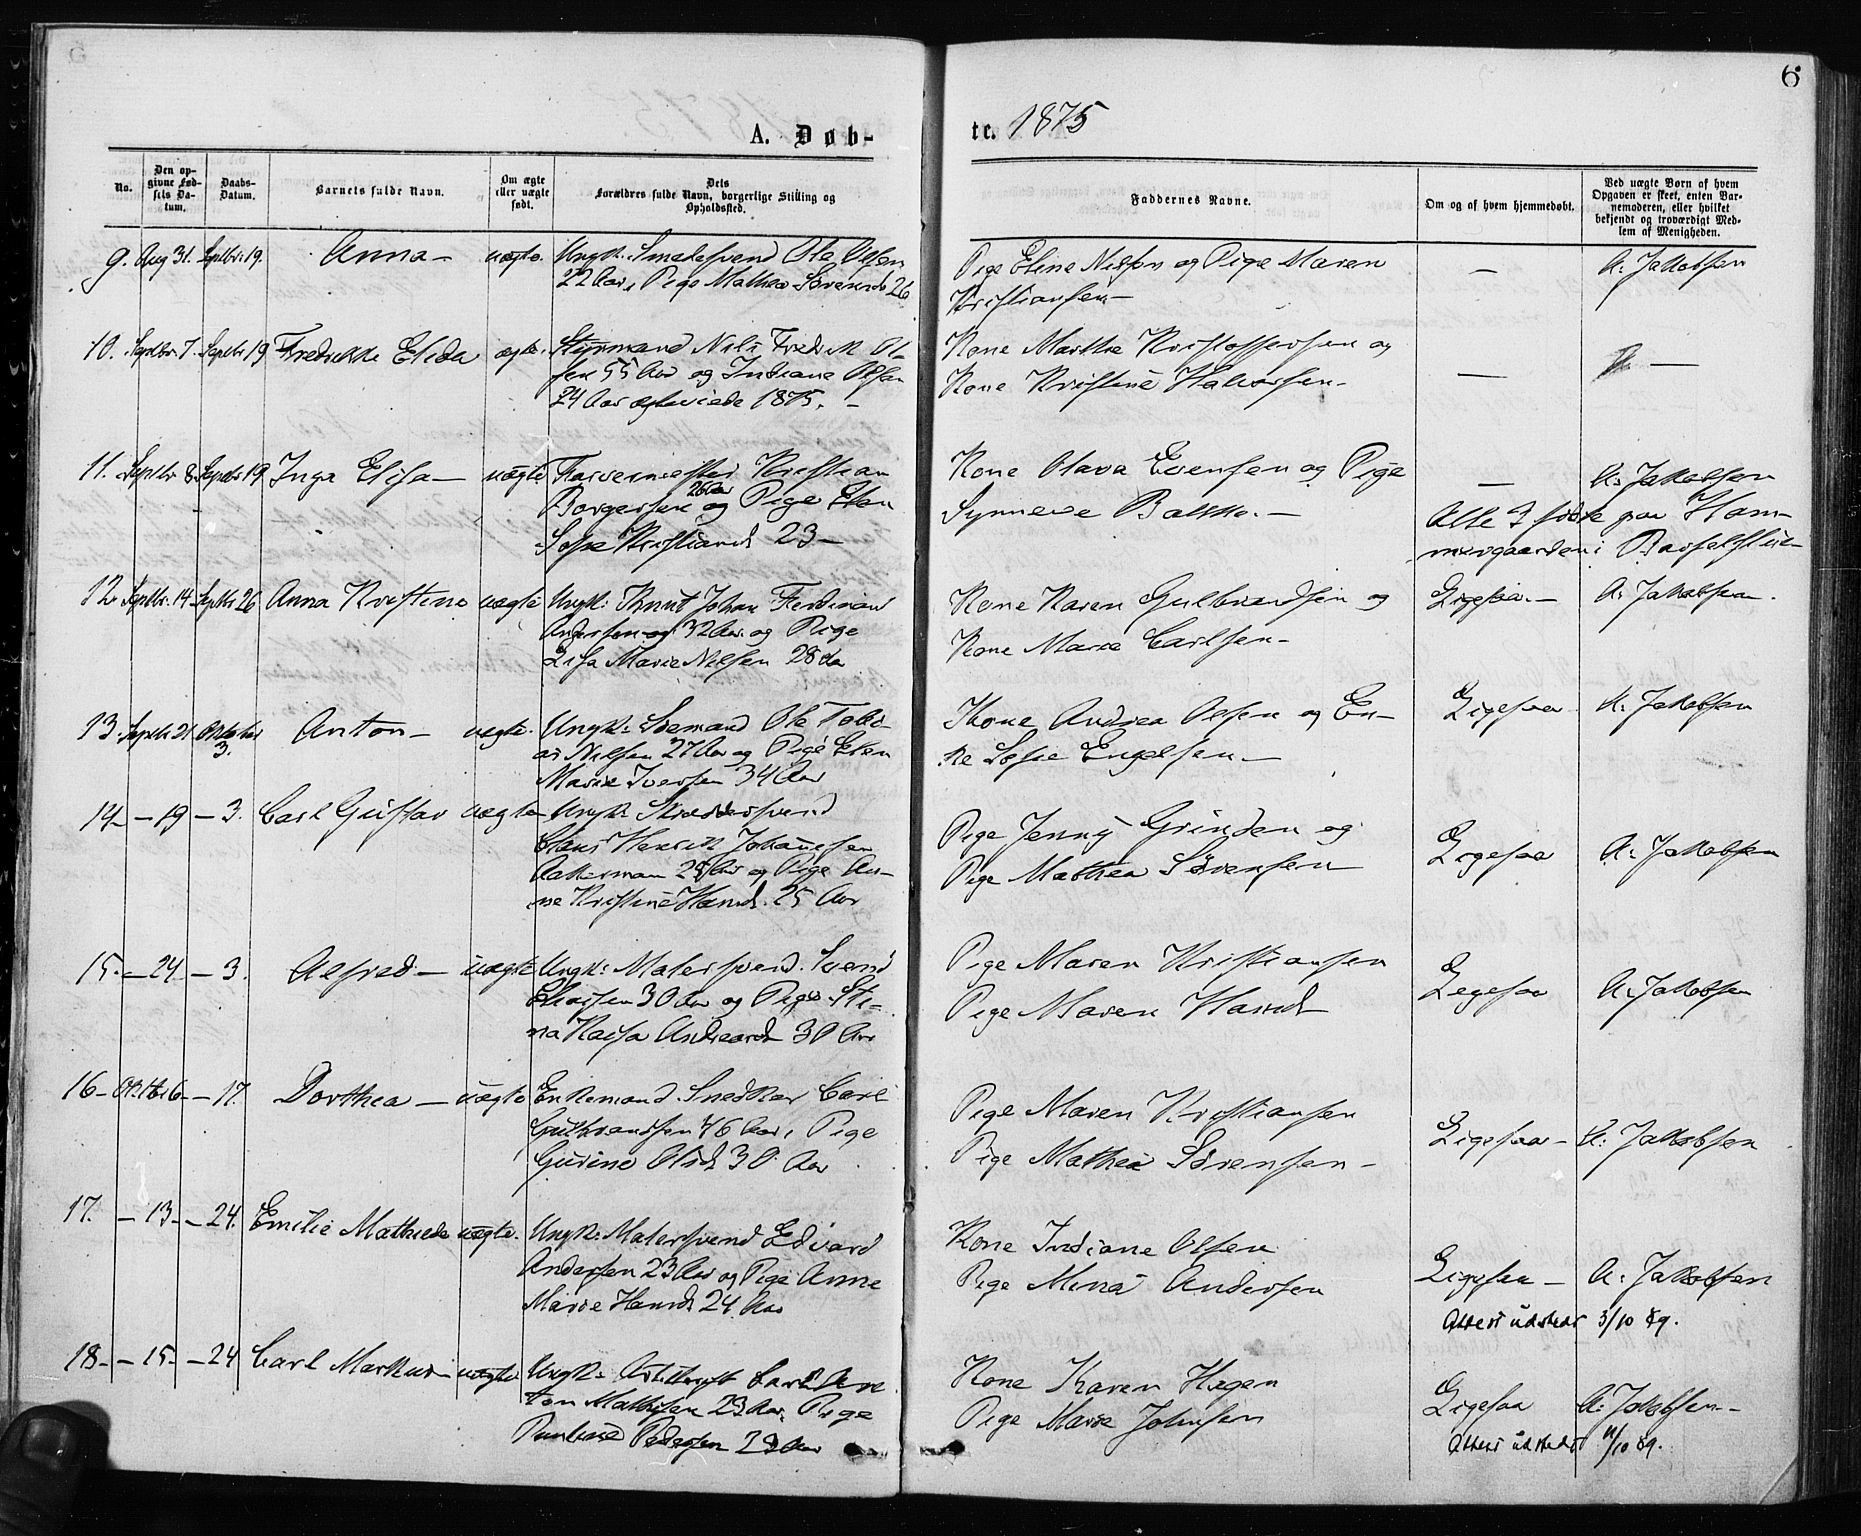 6
A. Døb-
te. 1875
No.
Den op-
givne Fød-
sels Da-
tum.
Daabs-
Datum.
Barnets fulde Navn.
Om ægte
eller uægte
født.
Dels
Forældres fulde Navn, borgerlige Stilling og
Opholdssted.
Faddernes Navne.
Om og af hvem hjemmedøbt.
Ved uægte Børn af hvem
Opgaven er skeet, enten Bar-
nemoderen, eller hvilket
bekjendt og troværdigt Med-
lem af Menigheden.
9. Aug 31. Septbr. 19. Anna – uægte. Ungk: Smedesvend Ole Olsen
22 Aar, Pige Mathea Sørensd 26
Pige Eline Nilsen og Pige Maren
Kristiansen –
— A: Jakobsen
10. Septbr. 7. Septbr 19 Fredrikke Elida ægte. Styrmand Nils Fredrik Ol-
sen 55 Aar og Indiane Olsen
24 Aar ægteviede 1875. –
Kone Marthe Kristoffersen og
Kone Kristine Halvorsen –
— —
11. Septbr 8 Septbr 19 Inga Elisa – uægte Farvermester Kristian
Borgersen 26 Aar og Pige Elen
Sofie Kristiansd 23 –
Kone Olava Evensen og Pige
Synneve Bakke. –
— A: Jakobsen
Alle 3 fødte paa Ham-
mersgaarden i Barselstue –
12. Septbr. 14 Septbr 26 Anna Kristine uægte Ungk: Knut Johan Ferdinand
Andersen 32 Aar og Pige
Lisa Marie Nilsen 28 Aar
Kone Karen Gulbrandsen og
Kone Marie Carlsen –
Ligesaa. – A: Jakobsen.
13. Septbr 21 Oktober
3. Anton – uægte. Ungk: Sømand Ole Tobi-
as Nilsen 27 Aar og Pige Elen
Marie Iversen 34 Aar
Kone Andrea Olsen og En-
ke Sofie Engelsen –
Ligesaa A: Jakobsen
14 – – 19 – 3. Carl Gustav uægte – Ungk: Skræddersvend
Claus Henrik Johannesen
Aakerman 25 Aar og Pige An-
ne Kristine Hansd. 25 Aar
Pige Jenny Grinden og
Pige Mathea Sørensen
Ligesaa A: Jakobsen
15 – – 24 – 3. Alfred – uægte Ungk: Malersvend. Svend
30 Aar og Pige Sti-
na Kaisa Andreasd 30 Aar
Pige Maren Kristiansen
Pige Maren Hansd
Ligesaa A: Jakobsen
16 – Oktb 6 – – 17. Dorthea – uægte Enkemand Snedker Carl
Gulbrandsen 46 Aar, Pige
Gurine Olsd 30 Aar
Pige Maren Kristiansen
Pige Mathea Sørensen –
Ligesaa – A: Jakobsen
17. – 13 – – 24. Emilie Mathilde uægte. Ungk: Malersvend Edvard
Andersen 23 Aar og Pige Anne
Marie Hansd 24 Aar
Kone Indiane Olsen
Pige Mina Andersen
Ligesaa – A: Jakobsen
Attest udstedt 3/10 89.
18 – – 15 – – 24 Carl Markus – uægte Ungk: Carl An
ton Mathisen 23 Aar, Pige
Pauline Pedersen Aar
Kone Karen Hagen
Pige Marie Johnsen
Ligesaa A: Jakobsen –
Attest udstedt 11/10 89.